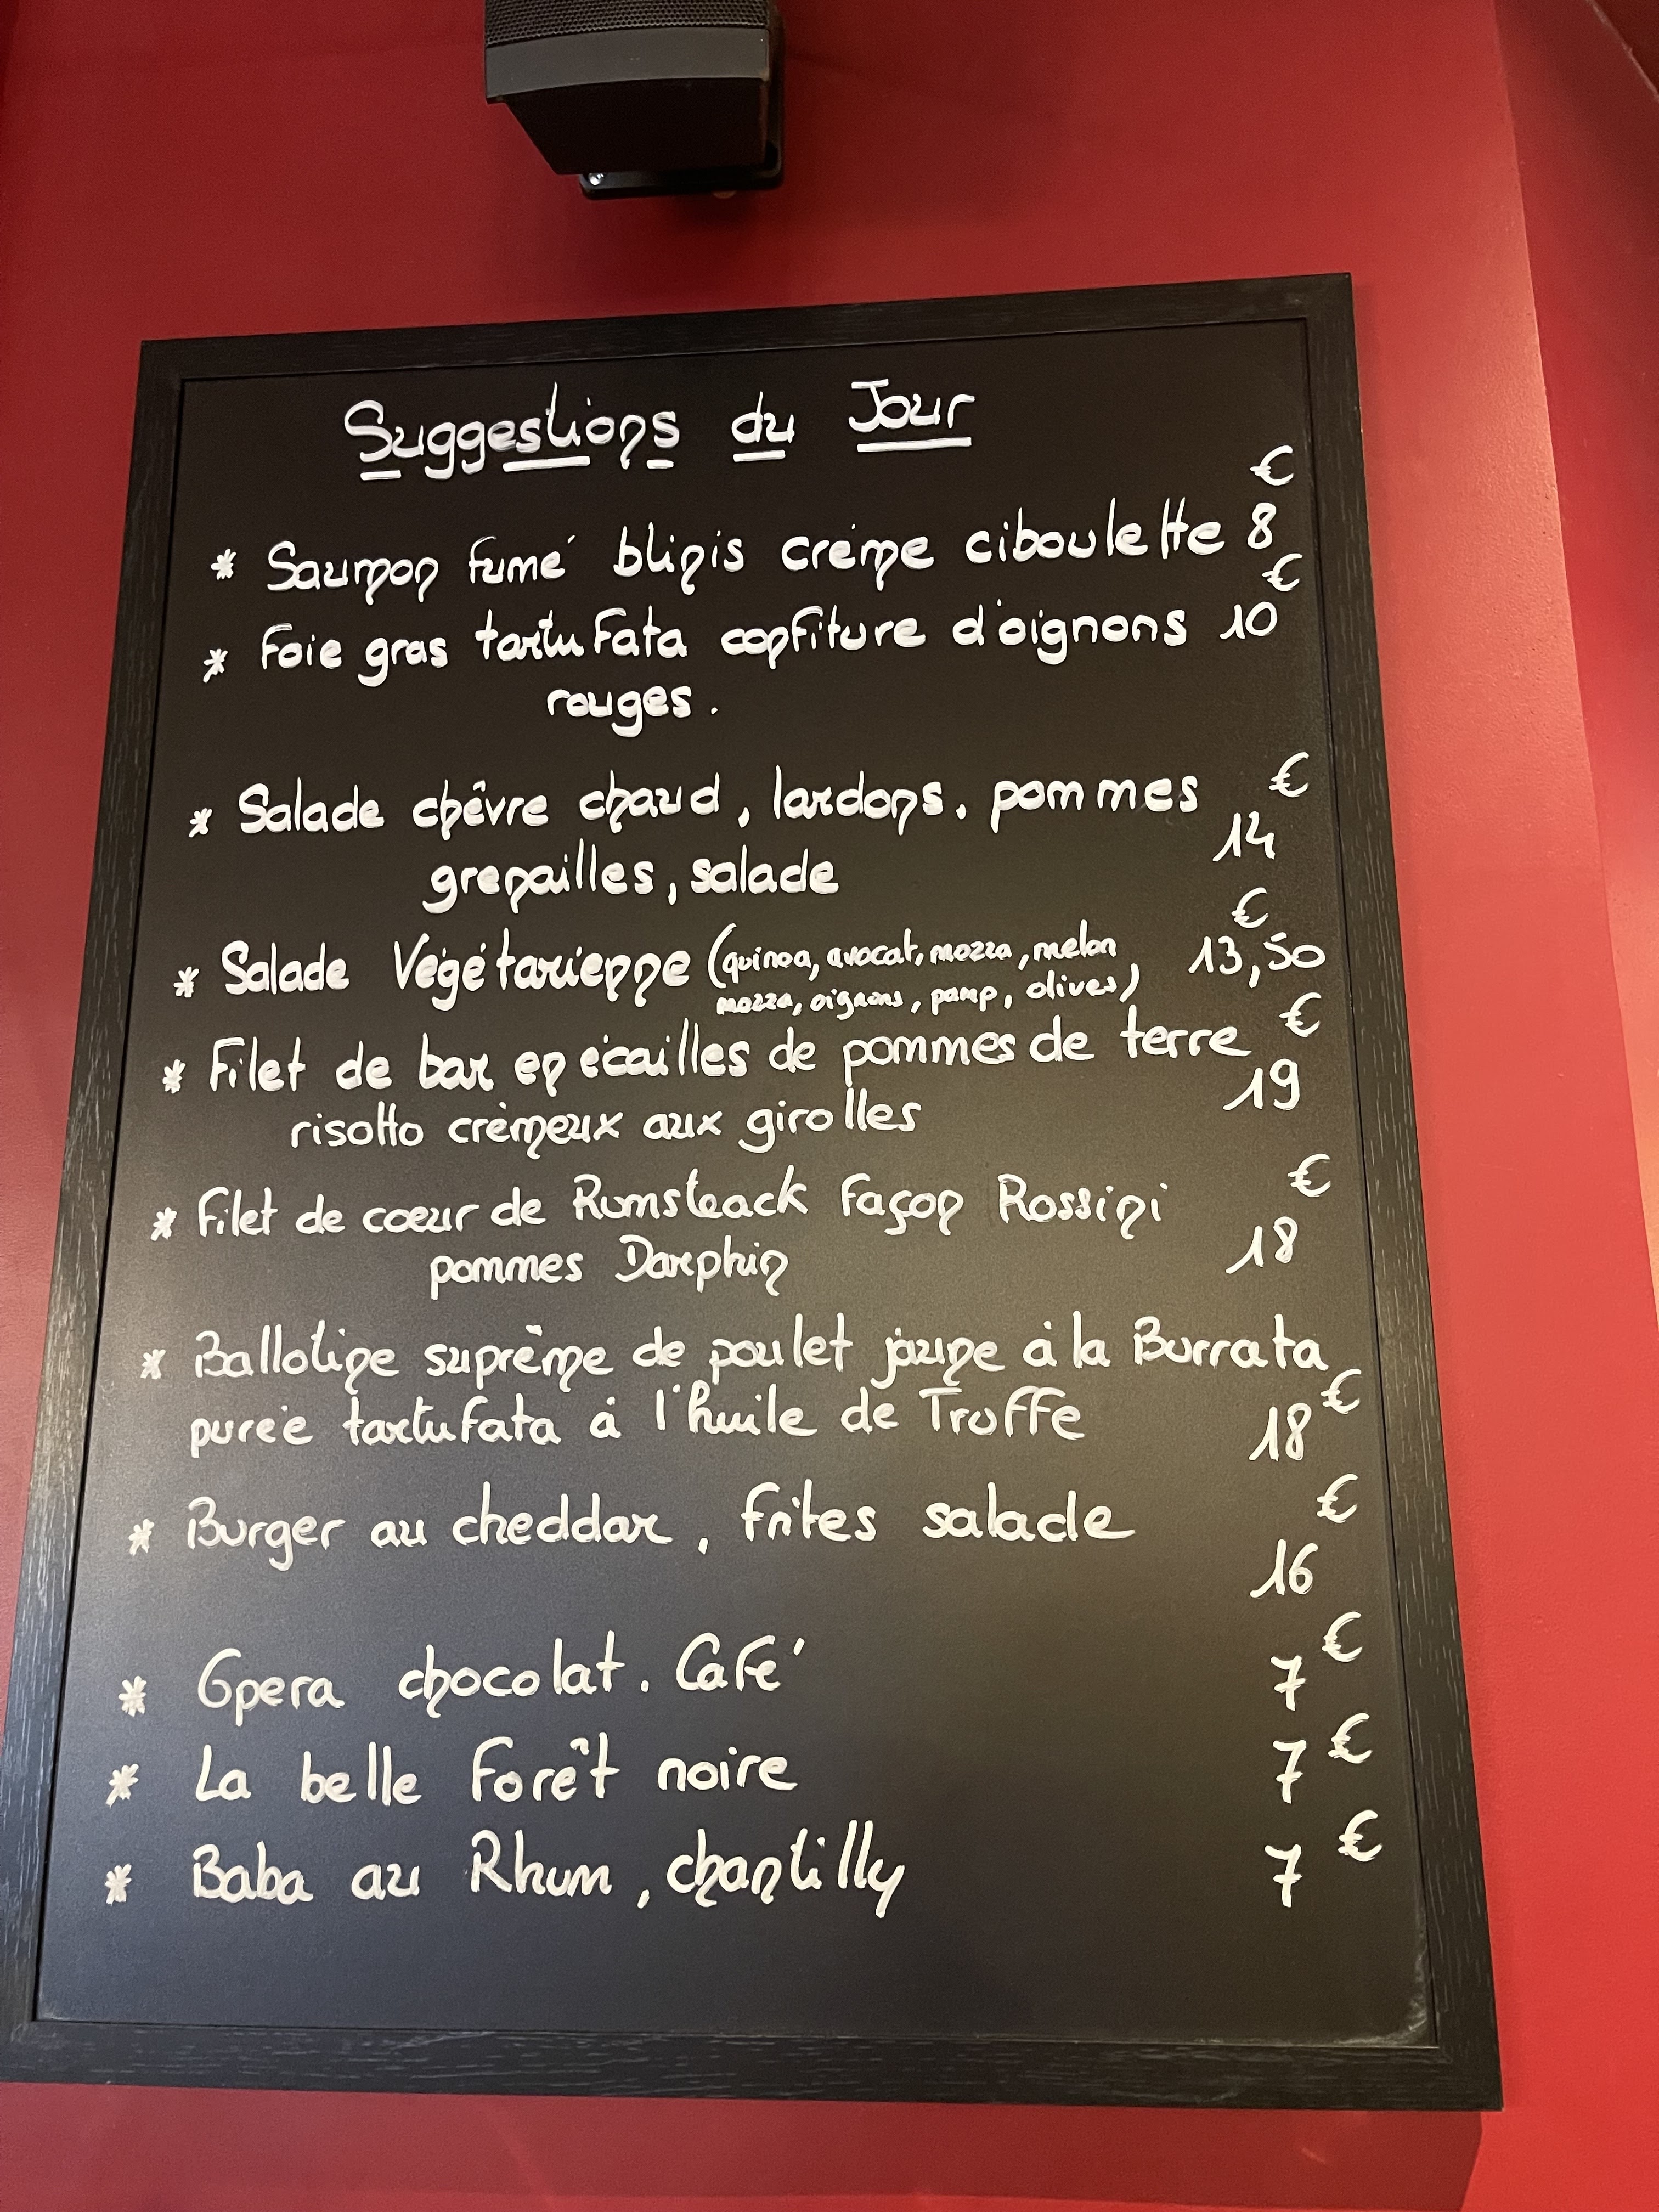 Suggestions du Jour
€
* Saumon fumé blinis crème ciboulette 8
€
* Foie gras tartufata confiture d'oignons 10
rouges.
* Salade chèvre chaud, lardons, pommes €
14
grenailles, salade
€
* Salade Végétarienne (quinoa, avocat, mozza, melon 13,50
mozza, oignons, pamp, olives)
* Filet de bar en écailles de pommes de terre €
19
risotto crèmeux aux girolles
* Filet de coeur de Rumsteack Façon Rossini €
pommes Darphin 18
* Ballotine suprême de poulet jaune à la Burrata
purée tartufata à l'huile de Truffe 18 €
* Burger au cheddar, frites salade €
16
* Opera chocolat. Café 7 €
* La belle Forêt noire 7 €
* Baba au Rhum, chantilly 7 €